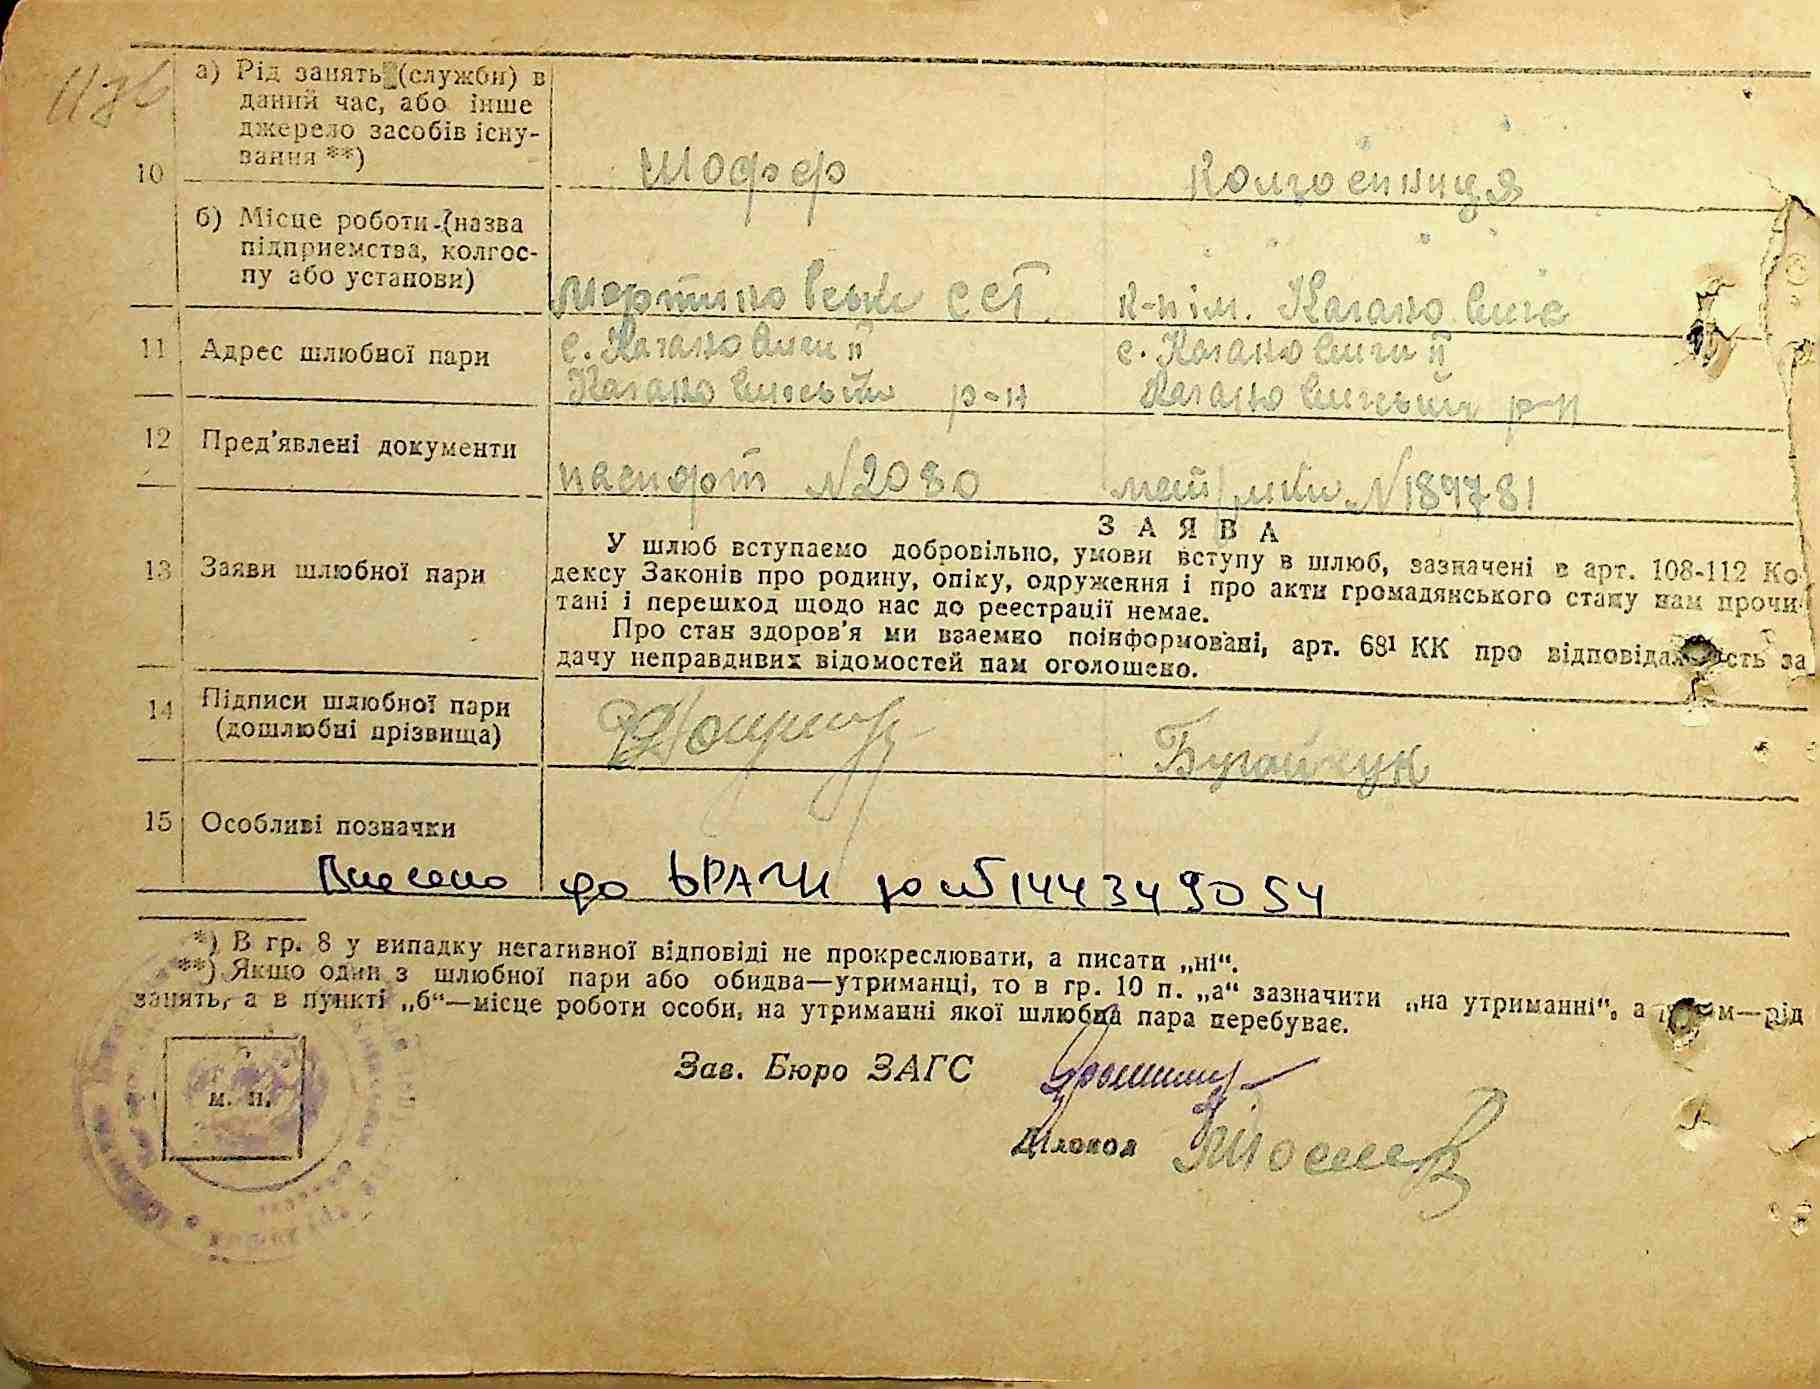 10
а) Рід занять (служби) в
даний час, або інше
джерело засобів існу-
вання **)
Шофер
Колгоспниця
б) Місце роботи (назва
підприємства, колгос-
пу або установи)
к-п ім. Кагановича
11
Адрес шлюбної пари
с. Кагановичи II
с. Кагановичи II
р-н
р-н
12
Пред'явлені документи
паспорт №2080
метрики №184781
13
Заяви шлюбної пари
ЗАЯВА
У шлюб вступаємо добровільно, умови вступу в шлюб, зазначені в арт. 108-112 Ко-
дексу Законів про родину, опіку, одруження і про акти громадянського стану нам прочи-
тані і перешкод щодо нас до реєстрації немає.
Про стан здоров'я ми взаємно поінформовані, арт. 68¹ КК про відповідальність за
дачу неправдивих відомостей нам оголошено.
14
Підписи шлюбної пари
(дошлюбні прізвища)
Бугайчук
15
Особливі позначки
Внесено до ДРАЦС за №144349054
*) В гр. 8 у випадку негативної відповіді не прокреслювати, а писати „ні“.
**) Якщо один з шлюбної пари або обидва—утриманці, то в гр. 10 п. „а“ зазначити „на утриманні“, а потім—рід
занять, а в пункті „б“—місце роботи особи, на утриманні якої шлюбна пара перебуває.
м. п.
Зав. Бюро ЗАГС
Діловод